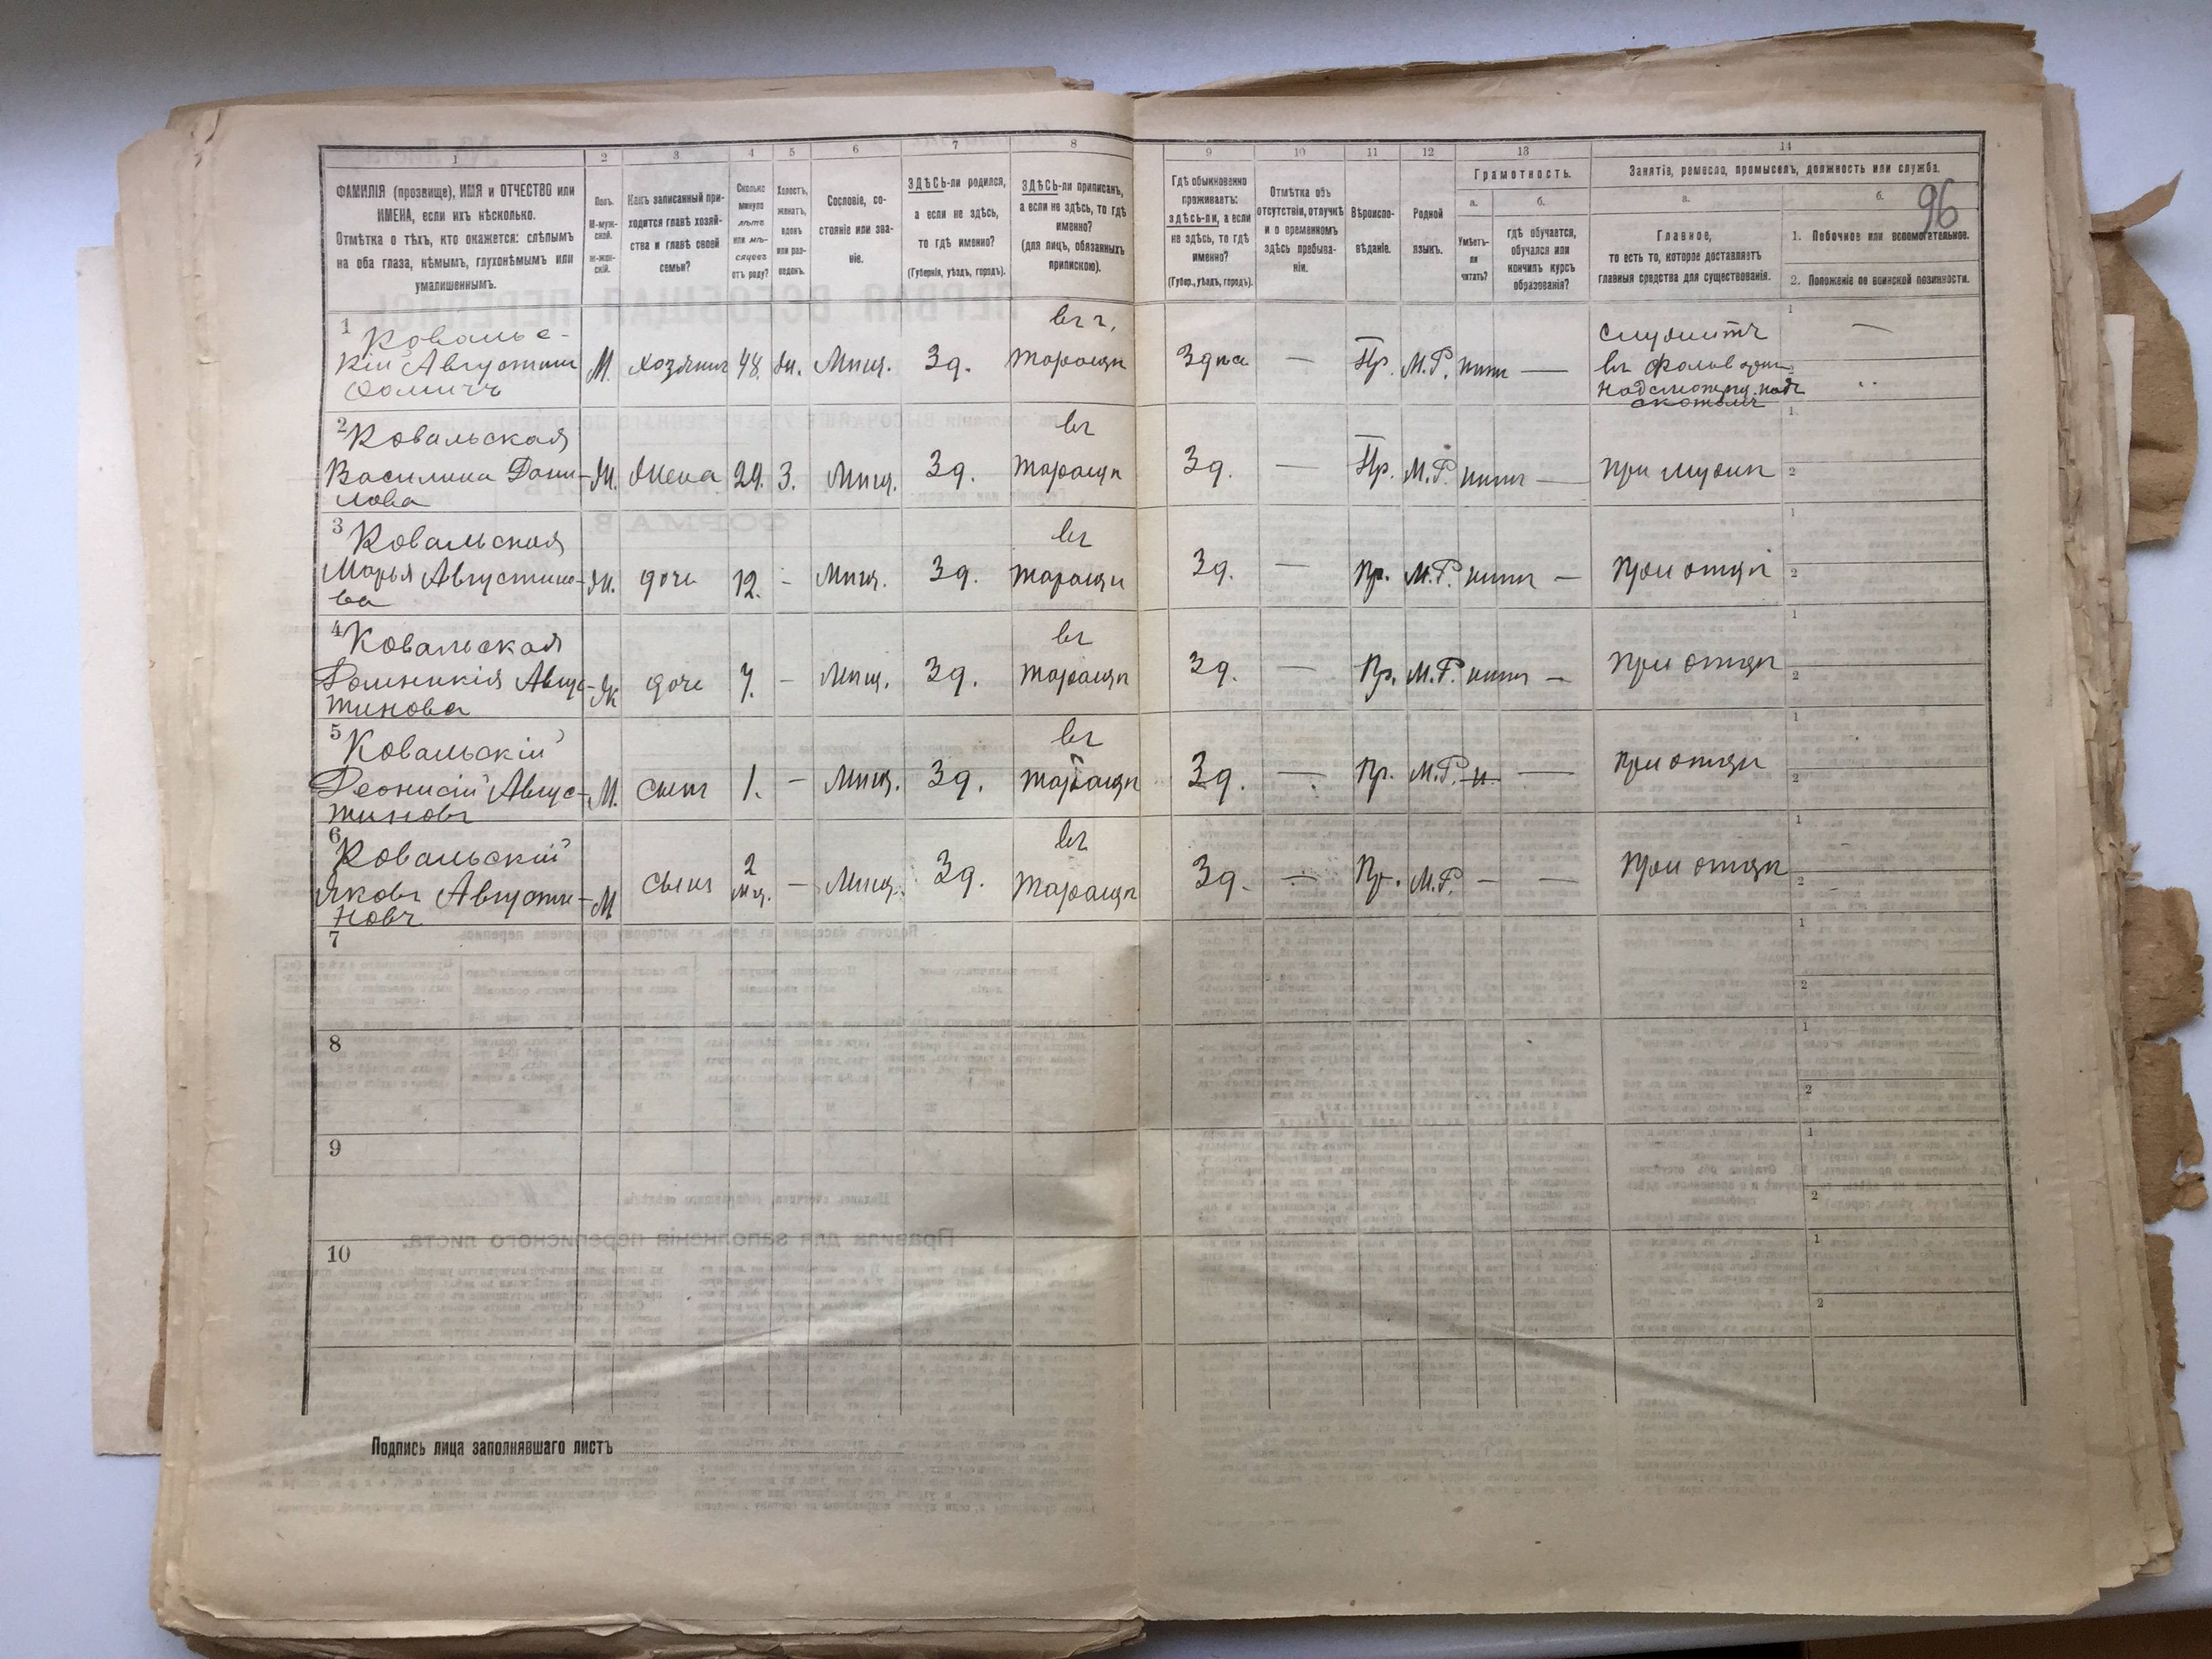 96
1
2
3
4
5
6
7
8
9
10
11
12
13
14
ФАМИЛІЯ (прозвище), ИМЯ и ОТЧЕСТВО или
ИМЕНА, если ихъ нѣсколько.
Отмѣтка о тѣхъ, кто окажется: слѣпымъ
на оба глаза, нѣмымъ, глухонѣмымъ или
умалишеннымъ.
Полъ.
М-муж-
ской.
Ж-жен-
скій.
Какъ записанный при-
ходится главѣ хозяй-
ства и главѣ своей
семьи?
Сколько
минуло
лѣтъ
или мѣ-
сяцевъ
отъ роду?
Холостъ,
женатъ,
вдовъ
или раз-
веденъ.
Сословіе, со-
стояніе или зва-
ніе.
ЗДѢСЬ-ли родился,
а если не здѣсь,
то гдѣ именно?
(Губернія, уѣздъ, городъ).
ЗДѢСЬ-ли приписанъ,
а если не здѣсь, то гдѣ
именно?
(для лицъ, обязанныхъ
припискою).
Гдѣ обыкновенно
проживаетъ:
здѣсь-ли, а если
не здѣсь, то гдѣ
именно?
(Губер., уѣздъ, городъ).
Отмѣтка объ
отсутствіи, отлучкѣ
и о временномъ
здѣсь пребыва-
ніи.
Вѣроиспо-
вѣданіе.
Родной
языкъ.
Грамотность.
а.
б.
Умѣетъ-
ли
читать?
гдѣ обучается,
обучался или
кончилъ курсъ
образованія?
Занятіе, ремесло, промыселъ, должность или служба.
а.
б.
Главное,
то есть то, которое доставляетъ
главныя средства для существованія.
1. Побочное или вспомогательное.
2. Положеніе по воинской повинности.
1 Ковальс-
кій Августин
Фомичъ
М. хозяинъ 48. Мѣщ. Зд.
въ г.
Таращѣ
Здѣсь — Пр. М.Р. нѣтъ —
Служитъ
въ
надсмотрщ. надъ
скотомъ
2 Ковальская
Василина Дани-
лова
Ж. Жена 29. З. Мѣщ. Зд.
въ
Таращѣ
Зд. — Пр. М.Р. нѣтъ — При мужѣ
3 Ковальская
Марья Августино-
ва
Ж. дочь 12. - Мѣщ. Зд.
въ
Таращѣ
Зд. — Пр. М.Р. нѣтъ — При отцѣ
4 Ковальская
Домникія Авгус-
тинова
Ж дочь 7. - Мѣщ. Зд.
въ
Таращѣ
Зд. — Пр. М.Р. нѣтъ — При отцѣ
5 Ковальскій
Деонисій Авгус-
тиновъ
М. сынъ 1. - Мѣщ. Зд.
въ
Таращѣ
Зд. — Пр. М.Р. н. — При отцѣ
6 Ковальскій
Яковъ Августи-
новъ
М сынъ 2
мц. - Мѣщ. Зд.
въ
Таращѣ
Зд. — Пр. М.Р. — — При отцѣ
7
8
9
10
Подпись лица заполнявшаго листъ